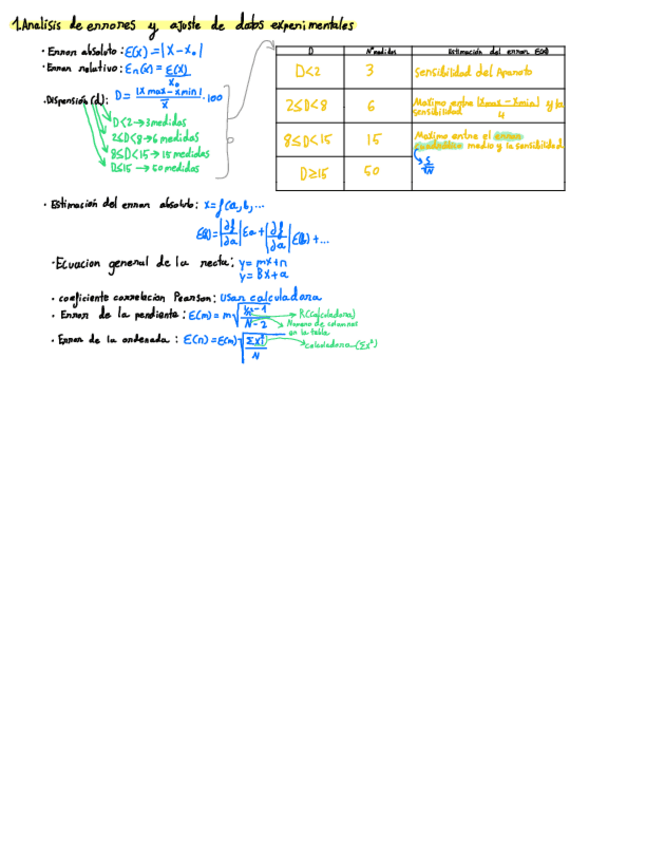 1.Analisis de errores y ajuste de datos experimentales
· Error absoluto: E(x) = |x - x₀|
· Error relativo: Er(x) = E(x)/x₀
· Dispersión (d): D = |x max - x min|/x̄ · 100
D<2 → 3 medidas
2≤D<8 → 6 medidas
8≤D<15 → 15 medidas
D≤15 → 50 medidas
D Nº medidas Estimación del error E(x)
D<2 3 sensibilidad del Aparato
2≤D<8 6 Maximo entre |xmax - xmin|/4 y la sensibilidad
8≤D<15 15 Maximo entre el error cuadratico medio y la sensibilidad
D≥15 50 S/√N
· Estimación del error absoluto: x = f(a, b, ...
E(x) = |∂f/∂a| Ea + |∂f/∂a| E(b) + ...
· Ecuacion general de la recta: y = mx+n
y = Bx+a
· coeficiente correlacion Pearson: Usar calculadora
· Error de la pendiente: E(m) = m √((1/r² - 1)/(N - 2)) → R(calculadora)
→ Numero de columnas
en la tabla
· Error de la ordenada: E(n) = E(m) √(Σx²/N) → calculadora → (Σx²)